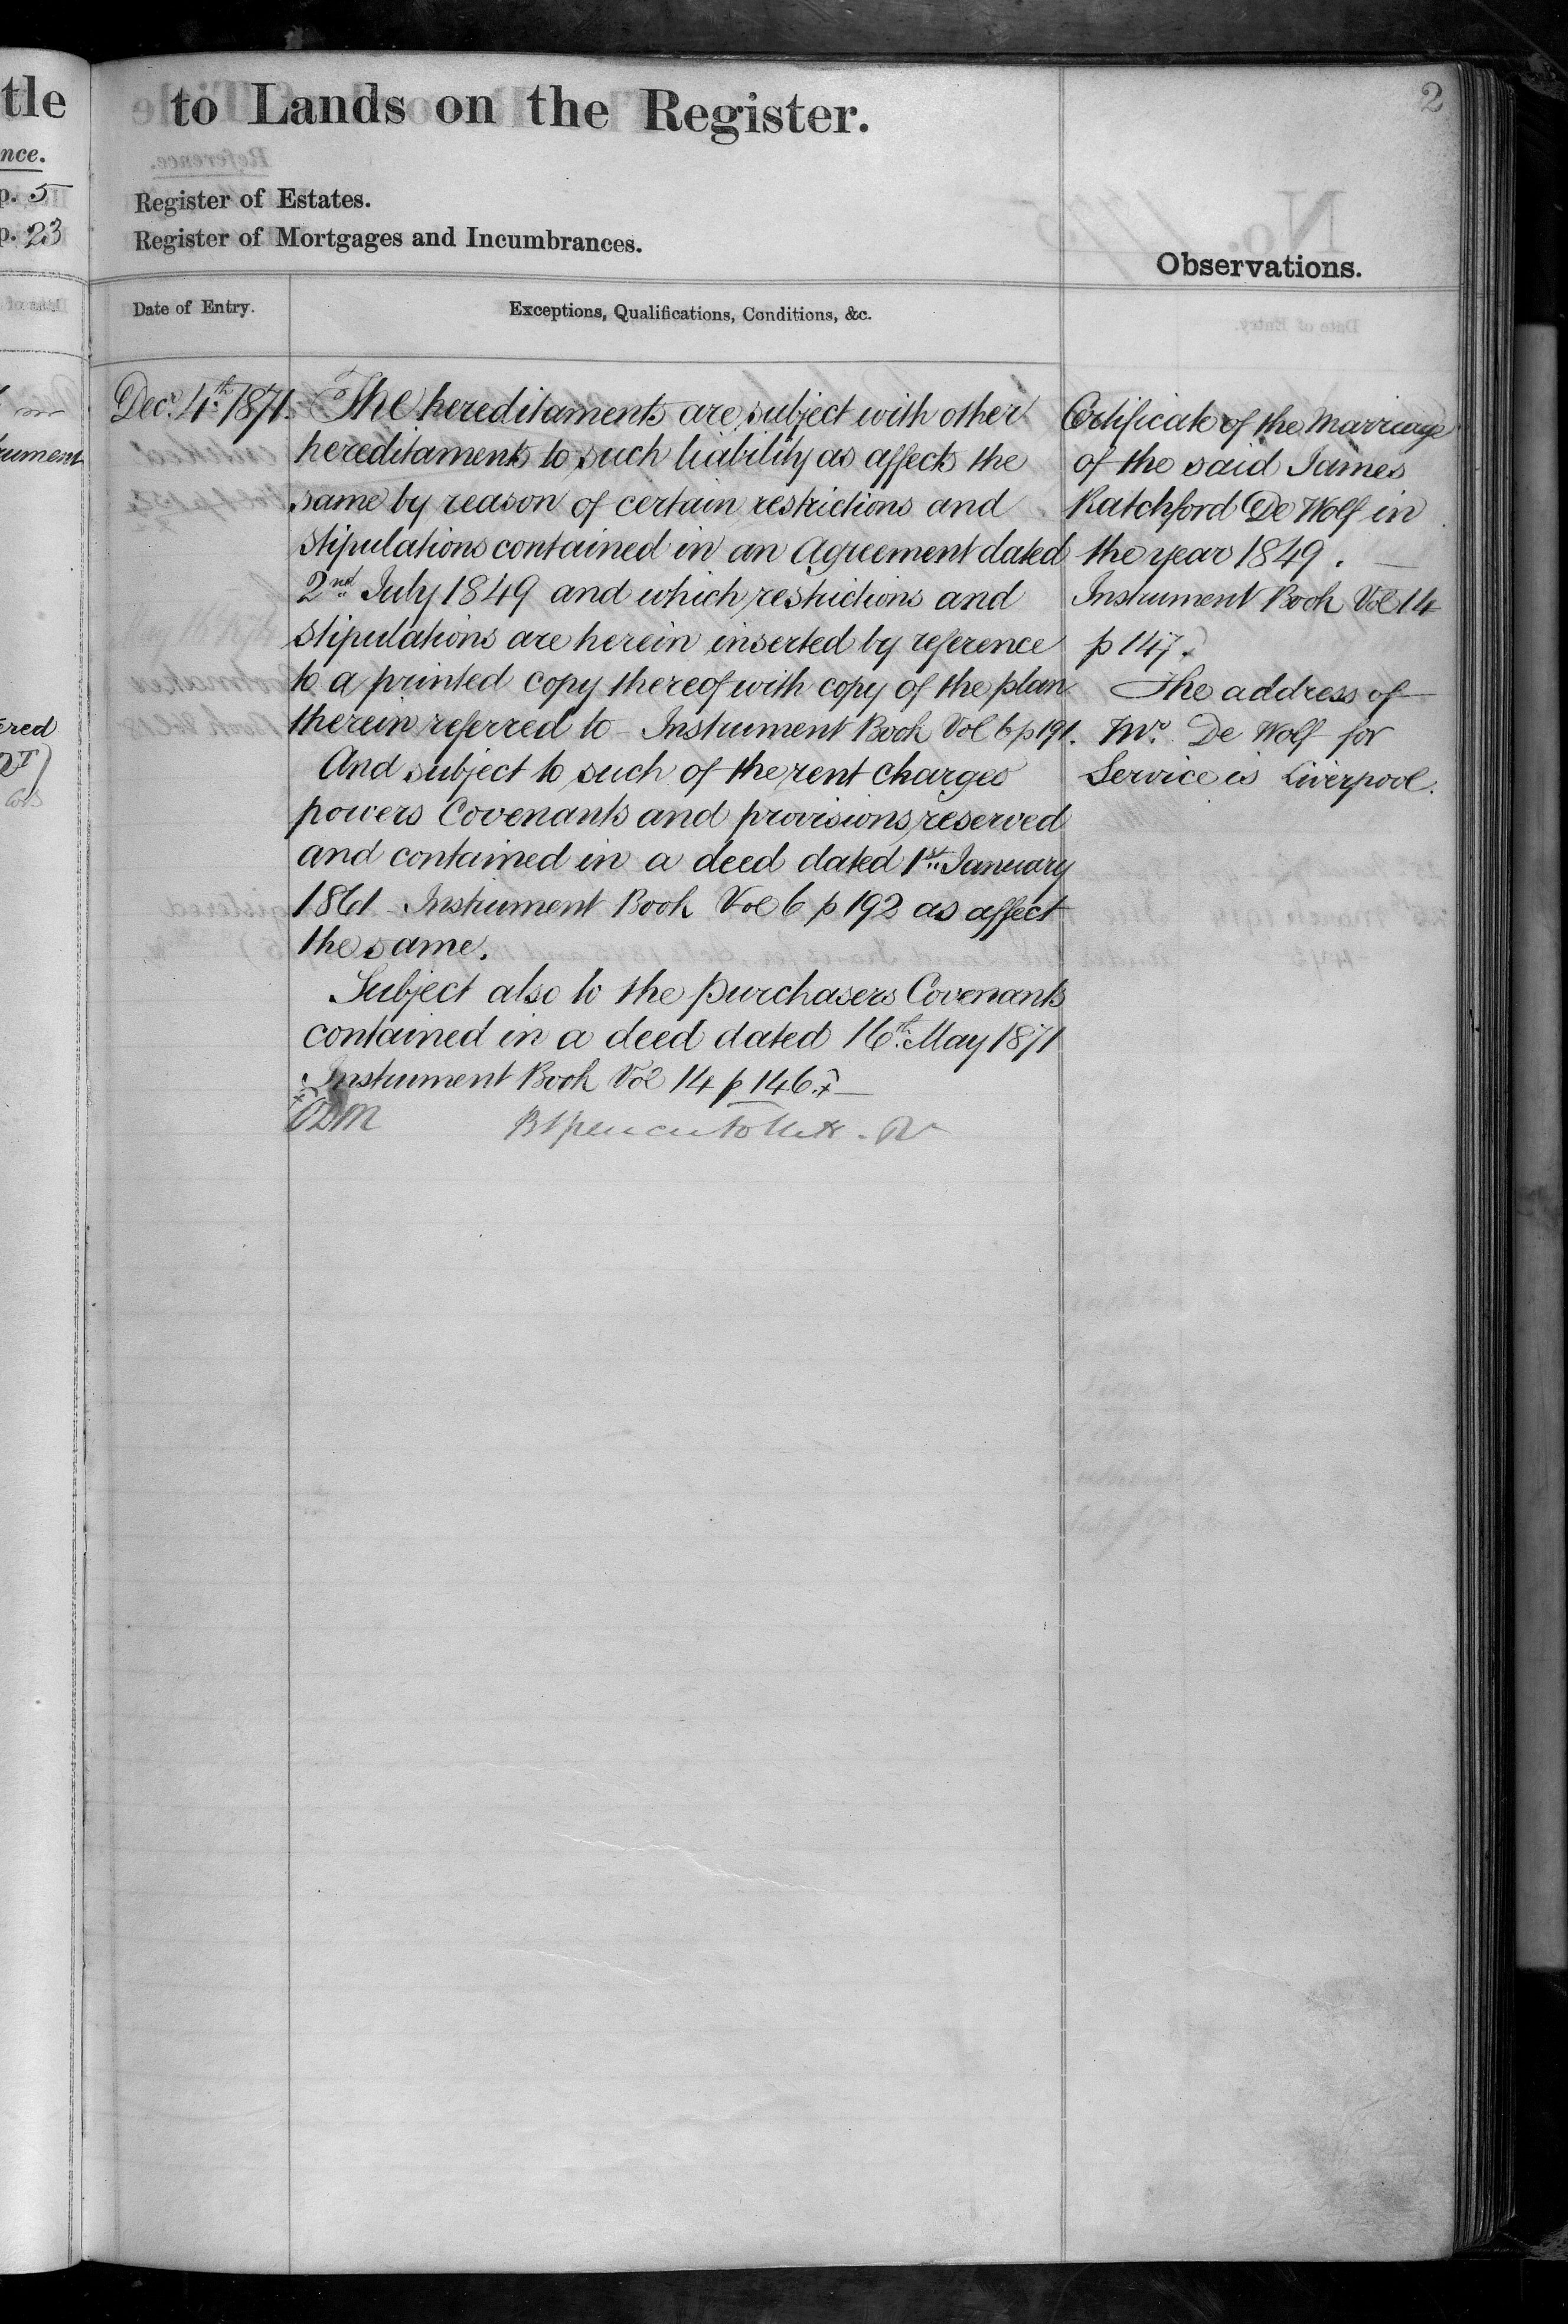 tle
nce.
p. 5
p. 23
ument
ered
to Lands on the Register.
2
Register of Estates.
Register of Mortgages and Incumbrances.
Observations.
Date of Entry.
Exceptions, Qualifications, Conditions, &c.
Decr. 4th 1871.
The hereditaments are subject with other
hereditaments to such liability as affects the
same by reason of certain restrictions and
stipulations contained in an Agreement dated
2nd July 1849 and which restrictions and
stipulations are herein inserted by reference
to a printed copy thereof with copy of the plan
therein referred to - Instrument Book Vol 6 p 191.
And subject to such of the rent charges
powers Covenants and provisions reserved
and contained in a deed dated 1st January
1861 Instrument Book Vol 6 p 192 as affect
the same.
Subject also to the purchasers Covenants
contained in a deed dated 16th May 1871
Instrument Book Vol 14 p 146.
Certificate of the Marriage
of the said James
Ratchford De Wolf in
the year 1849. —
Instrument Book Vol 14
p 147.
The address of
Mrs. De Wolf for
Service is Liverpool.